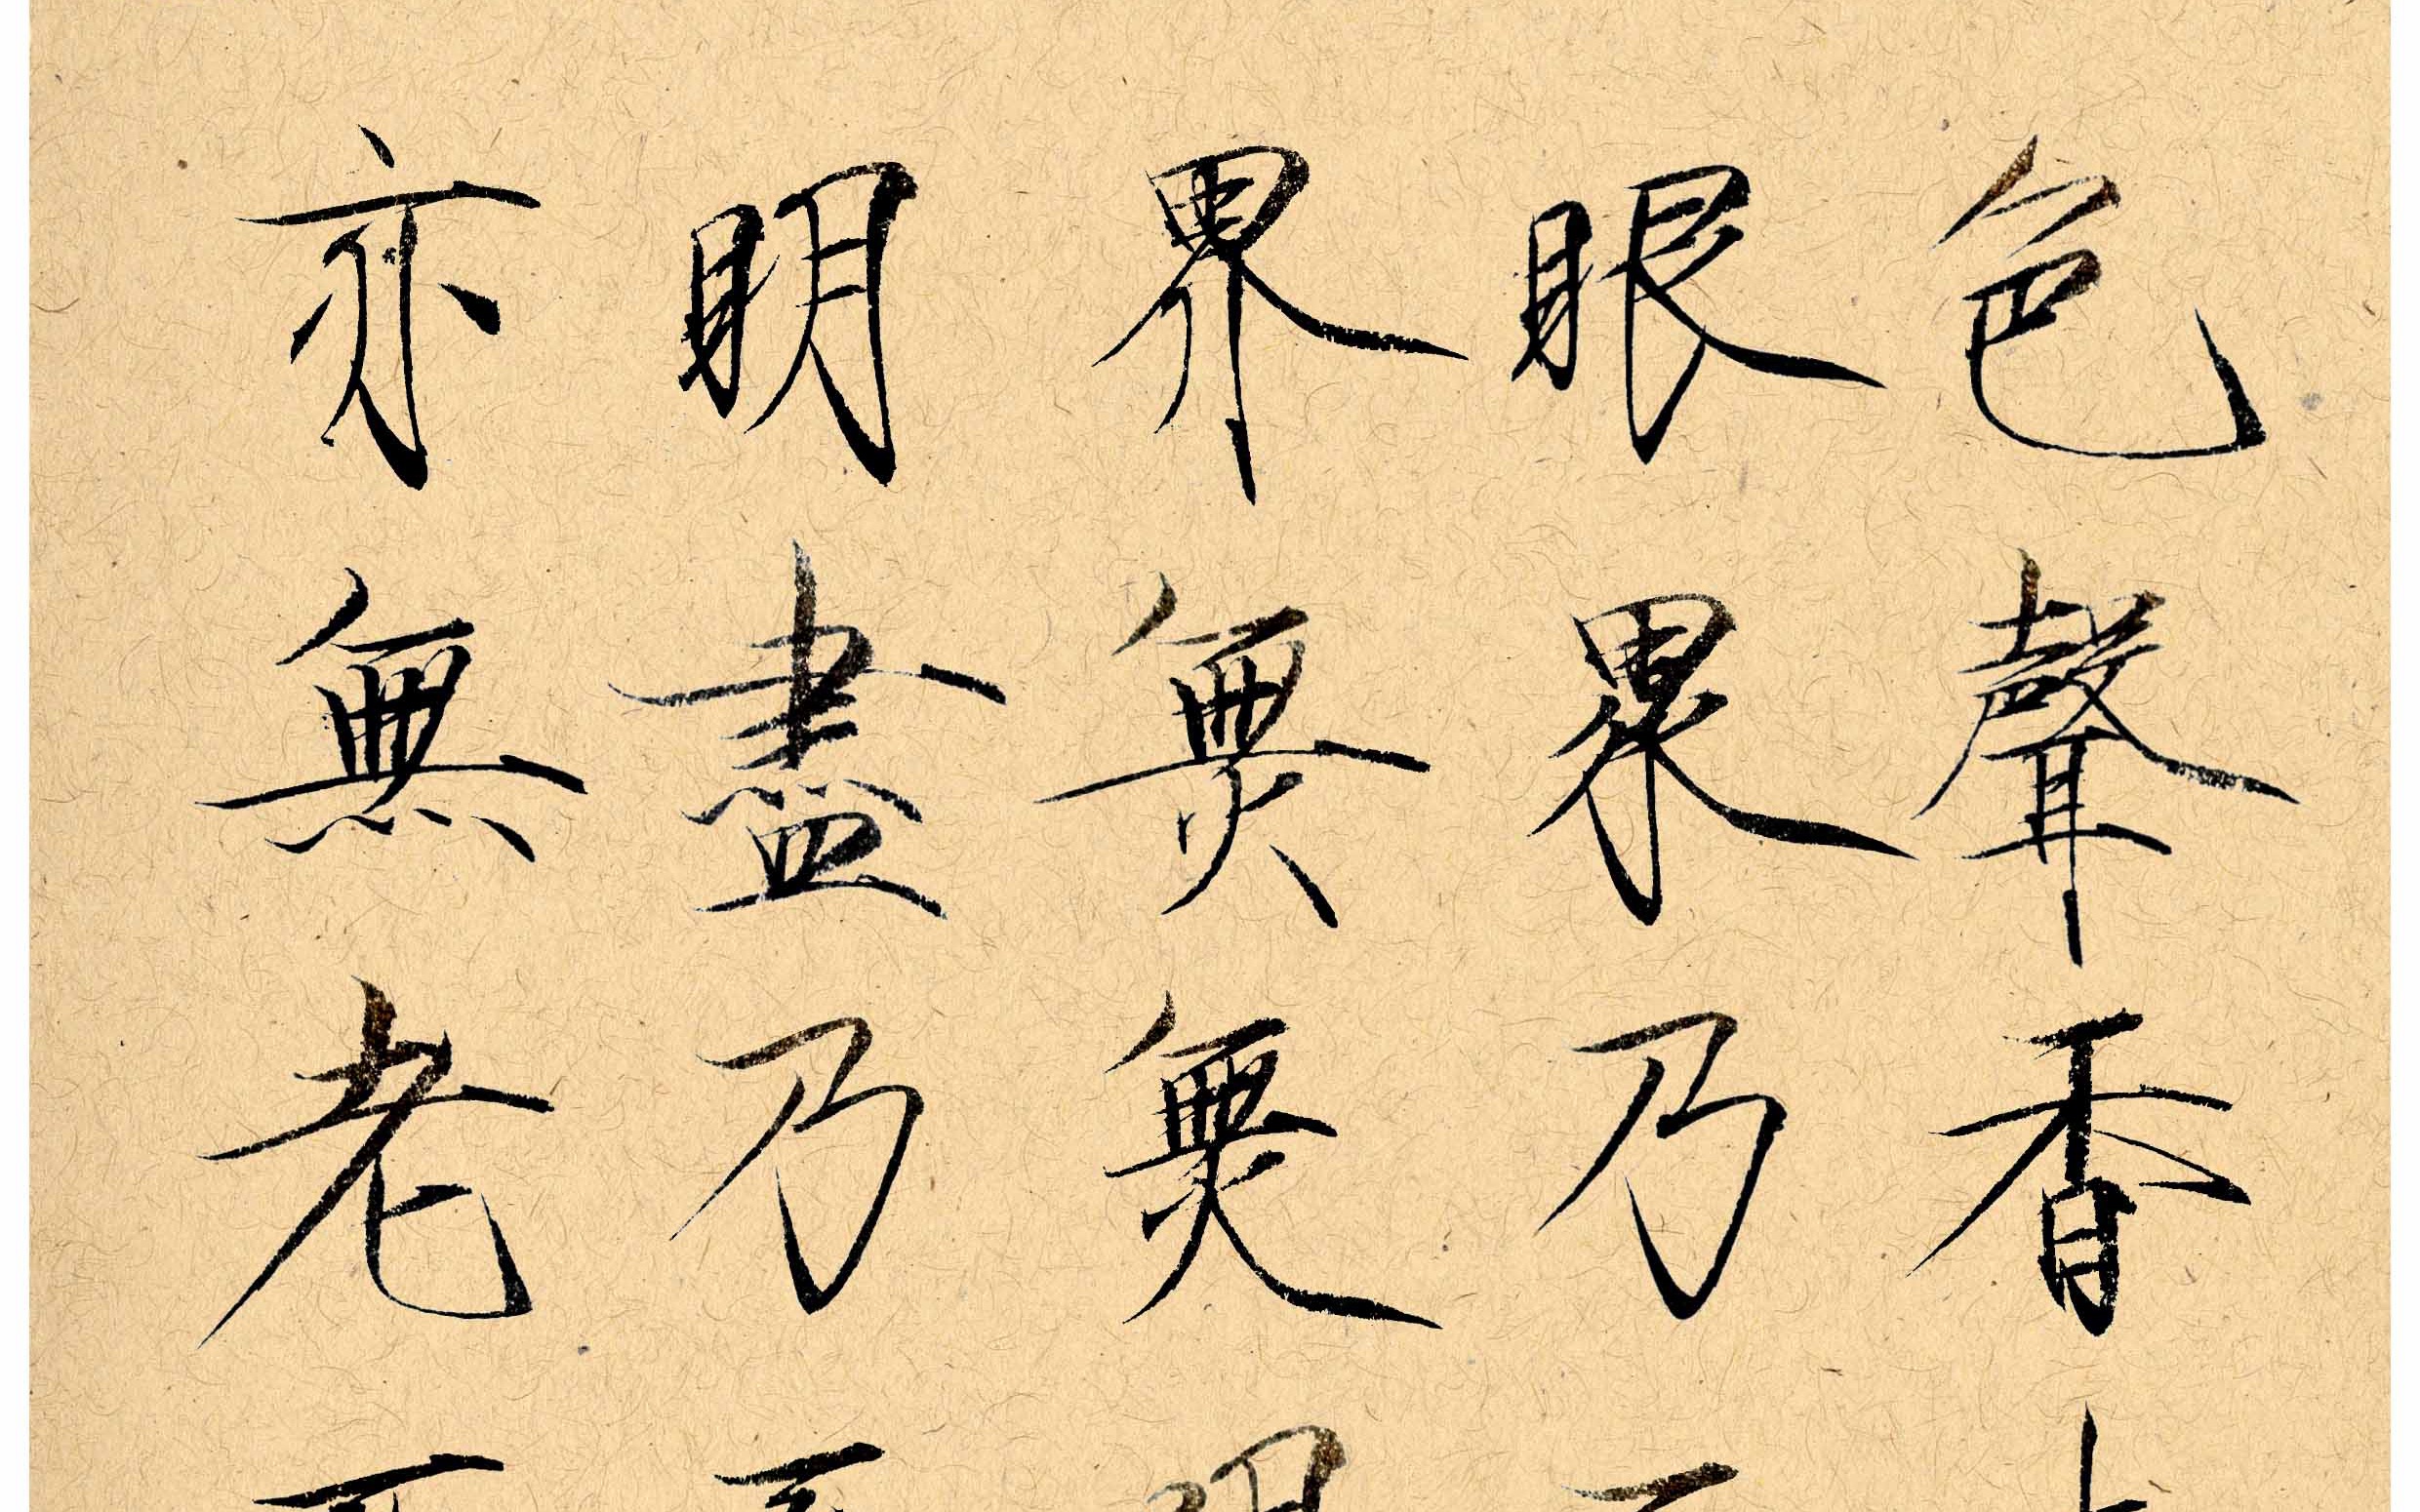 色聲香
眼界乃
界無無
明盡乃
亦無老